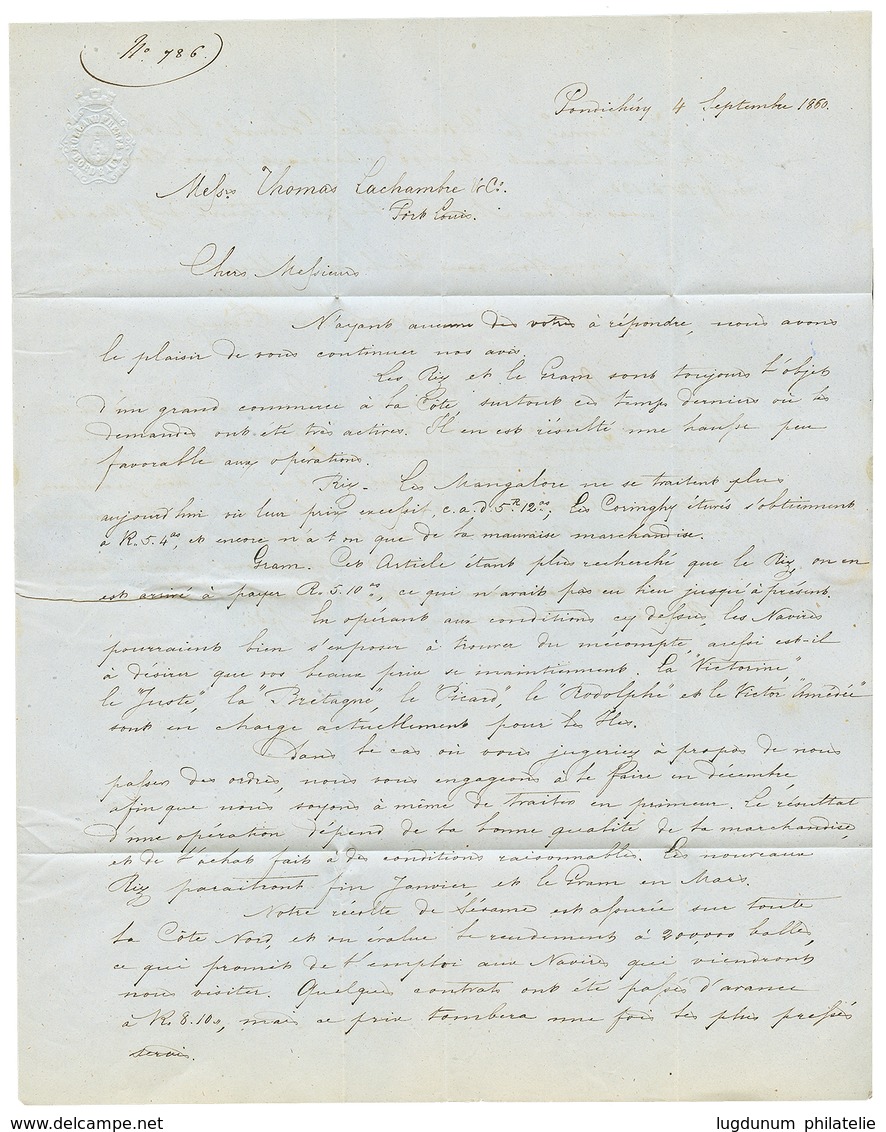 No 786.
Pondichéry 4 Septembre 1860.
Messrs Thomas Lachambre & Cie.
Port Louis.
Chers Messieurs
N'ayant aucune des votres à répondre, nous avons
le plaisir de vous continuer nos avis.
Les Riz et le Gram sont toujours l'objet
d'un grand commerce à la Côte surtout ces temps derniers où les
demandes ont été très actives. Il en est résulté une hausse peu
favorable aux opérations.
Riz. Les Mangalore ne se traitent plus
aujourd'hui vu leur prix excessif, c.a.d 5 R 12 as; Les Coringhy étuvés s'obtiennent
à R. 5.4 as, et encore n'a t'on que de la mauvaise marchandise.
Gram. Cet Article étant plus recherché que le Riz, on en
est arrivé à payer R. 5.10 as, ce qui n'avait pas eu lieu jusqu'à présent.
En opérant aux conditions cy dessus les Navires
pourraient bien s'exposer à trouver du mécompte, aussi est-il
à désirer que vos beaux prix se maintiennent. La "Victorine"
le "Juste", la "Bretagne", le "Picard", le "Rodolphe" et le Victor "Amédée"
sont en charge actuellement pour les Iles.
Dans le cas où vous jugeriez à propos de nous
passer des ordres, nous vous engageons à le faire en décembre
afin que nous soyons à même de traiter en primeur. Le résultat
d'une opération dépend de la bonne qualité de la marchandise,
et de l'achat fait à des conditions raisonnables. Les nouveaux
Riz paraitront fin Janvier et le Gram en Mars.
Notre récolte de Sésame est assurée sur toute
la Côte Nord, et on évalue le rendement à 200,000 balles,
ce qui promet de l'emploi aux Navires qui viendront
nous visiter. Quelques contrats ont été passés d'avance
à R. 8.10 a, mais ce prix tombera une fois les plus pressés
servis.
lugdunum philatelie